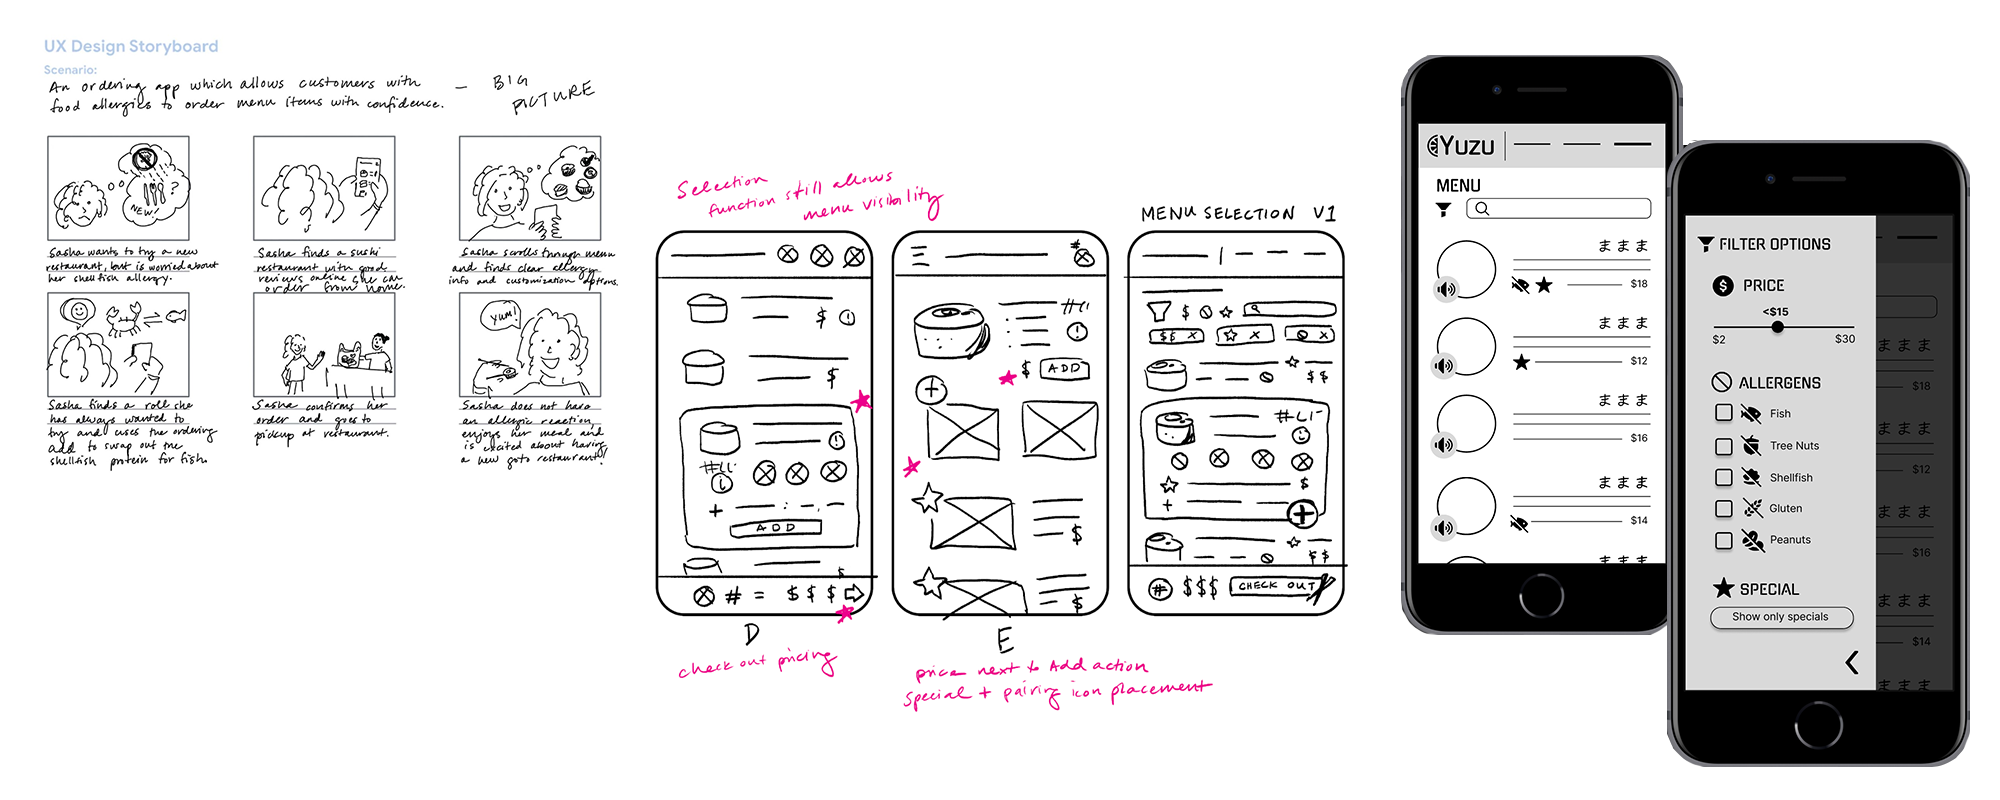 UX Design Storyboard
Scenario:
An ordering app which allows customers with
food allergies to order menu items with confidence.
— BIG
PICTURE
?
NEW!
Sasha wants to try a new
restaurant, but is worried about
her shellfish allergy.
Sasha finds a sushi
restaurant with good
reviews online she can
order from home.
Sasha scrolls through menu
and finds clear allergy
info and customization options.
Sasha finds a roll she
has always wanted to
try and uses the ordering
add to swap out the
shellfish protein for fish.
Sasha confirms her
order and goes to
pickup at restaurant.
YUM!
Sasha does not have
an allergic reaction,
enjoys her meal and
is excited about having
a new goto restaurant!
Selection
function still allows
menu visibility
$
$
ADD
# = $ $ $
D
check out pricing
#
$ ADD
$
$
E
price next to Add action
special + pairing icon placement
MENU SELECTION V1
$
$$ x
x
x
$$
$
$$
# $$$ CHECK OUT
YUZU
MENU
ままま
$18
ままま
$12
ままま
$16
ままま
$14
ままま
FILTER OPTIONS
$ PRICE
<$15
$2
$30
ALLERGENS
Fish
Tree Nuts
Shellfish
Gluten
Peanuts
SPECIAL
Show only specials
ままま
$18
ままま
$12
ままま
$16
ままま
$14
ままま